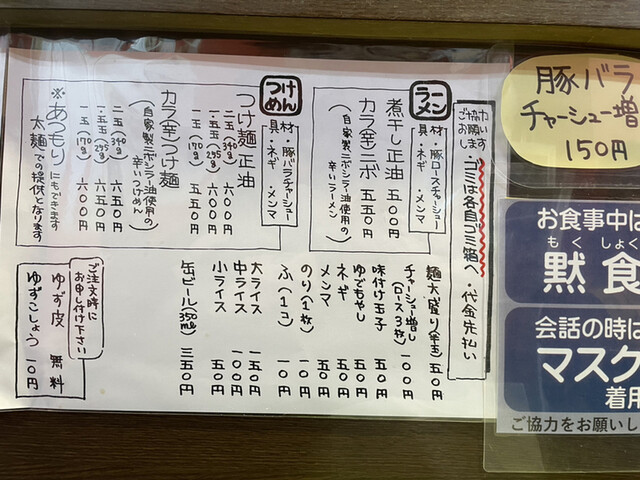 ・ゴミは各自ゴミ箱へ・代金先払い
ご協力お願いします
ラーメン
具材・豚ロースチャーシュー
・ネギ・メンマ
煮干し正油 五〇〇円
カラ(辛)ニボ 五五〇円
(自家製ニボシラー油使用の
辛いラーメン)
つけめん
具材・豚バラチャーシュー
・ネギ・メンマ
つけ麺正油
二玉(340g) 六〇〇円
一五玉(255g) 五五〇円
一玉(170g) 五五〇円
カラ(辛)つけ麺
(自家製ニボシラー油使用の
辛いつけめん)
二玉(340g) 六五〇円
一五玉(255g) 六〇〇円
一玉(170g) 六〇〇円
※あつもりにもできます
太麺での提供となります
麺大盛り(半玉) 五〇円
チャーシュー増し
(ロース3枚) 一〇〇円
味付け玉子 五〇円
ゆでもやし 五〇円
ネギ 五〇円
メンマ 五〇円
のり(1枚) 一〇円
ふ(1コ) 一〇円
大ライス 一五〇円
中ライス 一〇〇円
小ライス 五〇円
缶ビール(350ml) 三五〇円
ご注文時に
お申し付け下さい
ゆず皮 無料
ゆずこしょう 一〇円
豚バラ
チャーシュー増
150円
お食事中は
もくしょく
黙食
会話の時は
マスク
着用
ご協力をお願いし